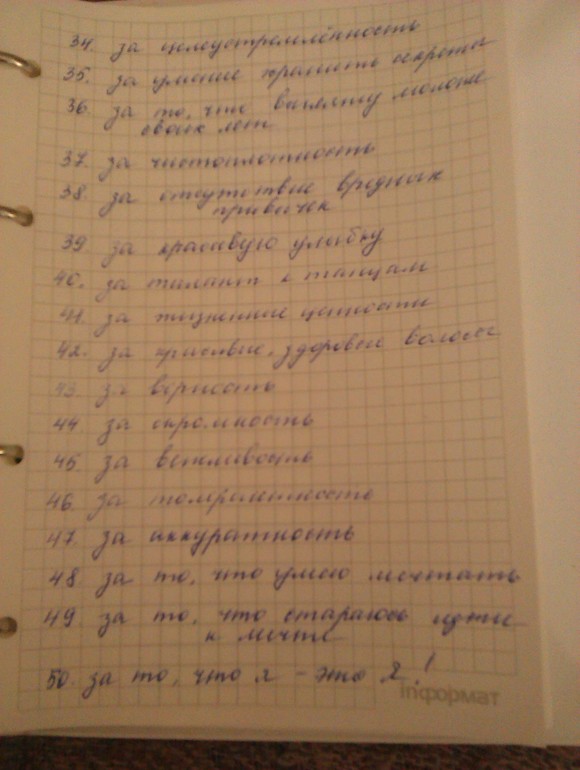 34. за целеустремлённость
35. за умение хранить секреты
36. за то, что выгляжу моложе
своих лет
37. за чистоплотность
38. за отсутствие вредных
привычек
39. за красивую улыбку
40. за талант к танцам
41. за жизненные ценности
42. за красивые, здоровые волосы
43. за верность
44. за скромность
45. за вежливость
46. за толерантность
47. за аккуратность
48. за то, что умею мечтать
49. за то, что стараюсь идти
к мечте
50. за то, что я - это Я!
inформат